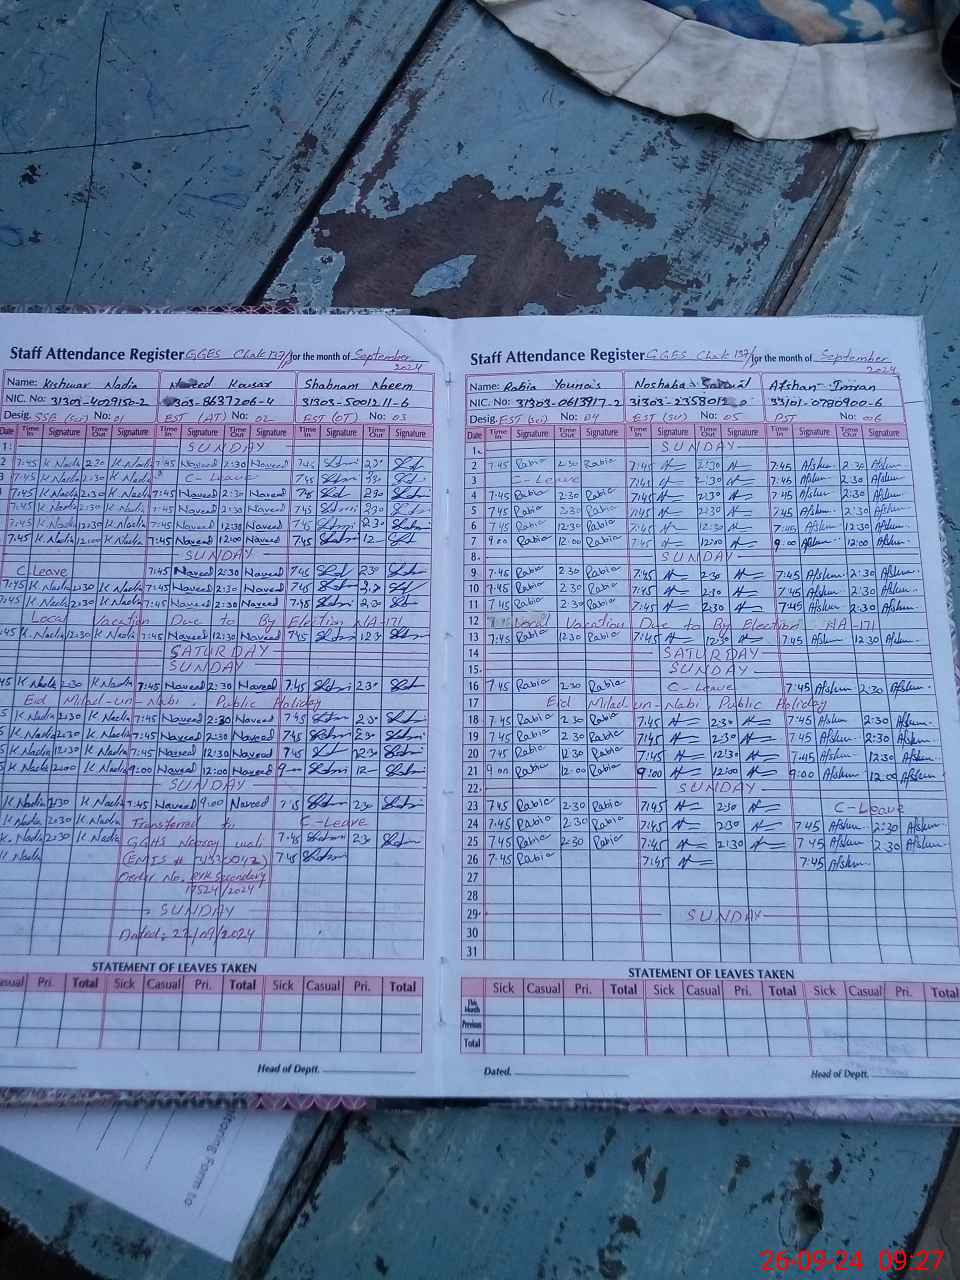 Staff Attendance Register GGES Chak 137/P for the month of September 2024
Name: Kishwar Nadia Naveed Kousar Shabnam Naeem
NIC. No: 31303-4029150-2 303-8637206-4 31303-5001211-6
Desig. SSE (Sci) No: 01 EST (AT) No: 02 EST (OT) No: 03
Date Time In Signature Time Out Signature Time In Signature Time Out Signature Time In Signature Time Out Signature
1: SUNDAY
2 7:45 K Nadia 2:30 K Nadia 7:45 Naveed 2:30 Naveed 7:45 2:30
3 7:45 K Nadia 2:30 K Nadia C-Leave 7:45 2:30
4 7:45 K Nadia 2:30 K Nadia 7:45 Naveed 2:30 Naveed 7:45 2:30
7:45 K Nadia 2:30 K Nadia 7:45 Naveed 2:30 Naveed 7:45 2:30
7:45 K Nadia 12:30 K Nadia 7:45 Naveed 12:30 Naveed 7:45
7:45 K Nadia 12:00 K Nadia 7:45 Naveed 12:00 Naveed 7:45 12
SUNDAY
C Leave 7:45 Naveed 2:30 Naveed 7:45 2:30
7:45 K Nadia 2:30 K Nadia 7:45 Naveed 2:30 Naveed 7:45
7:45 K Nadia 2:30 K Nadia 7:45 Naveed 2:30 Naveed 7:45 2:30
Local Vacation Due to By Election NA-171
:45 K Nadia 12:30 K Nadia 7:45 Naveed 12:30 Naveed 7:45 12:30
SATURDAY
SUNDAY
45 K Nadia 2:30 K Nadia 7:45 Naveed 2:30 Naveed 7:45 2:30
Eid Milad-un-Nabi, Public Holiday
K Nadia 2:30 K Nadia 7:45 Naveed 2:30 Naveed 7:45 2:30
K Nadia 2:30 K Nadia 7:45 Naveed 2:30 Naveed 7:45 2:30
K Nadia 12:30 K Nadia 7:45 Naveed 12:30 Naveed 7:45 12:30
K Nadia 12:00 K Nadia 9:00 Naveed 12:00 Naveed 9 12
SUNDAY
K Nadia 2:30 K Nadia 7:45 Naveed 9:00 Naveed 7:45 2:30
K Nadia 2:30 K Nadia Transferred to C-Leave
K. Nadia 2:30 K Nadia GGHS wali 7:45 2:30
Nadia (EMIS # ) 7:45
Order No. RYK Secondary
17524/2024
SUNDAY
Dated: /09/2024
STATEMENT OF LEAVES TAKEN
Casual Pri. Total Sick Casual Pri. Total Sick Casual Pri. Total
Head of Deptt.
Staff Attendance Register GGES Chak 137/P for the month of September 2024
Name: Rabia Younais Noshaba Afshan Imran
NIC. No: 31303-0613917-2 31303-2358012 0 33101-0780900-6
Desig. EST (Sci) No: 04 EST (SV) No: 05 PST No: 006
Date Time In Signature Time Out Signature Time In Signature Time Out Signature Time In Signature Time Out Signature
1. SUNDAY
2 7:45 Rabia 2:30 Rabia 7:45 2:30 7:45 Afshan 2:30 Afshan
3 C-Leave 7:45 2:30 7:45 Afshan 2:30 Afshan
4 7:45 Rabia 2:30 Rabia 7:45 2:30 7:45 Afshan 2:30 Afshan
5 7:45 Rabia 2:30 Rabia 7:45 2:30 7:45 Afshan 2:30 Afshan
6 7:45 Rabia 12:30 Rabia 7:45 12:30 7:45 Afshan 12:30 Afshan
7 9:00 Rabia 12:00 Rabia 7:45 12:00 9:00 Afshan 12:00 Afshan
8. SUNDAY
9 7:45 Rabia 2:30 Rabia 7:45 2:30 7:45 Afshan 2:30 Afshan
10 7:45 Rabia 2:30 Rabia 7:45 2:30 7:45 Afshan 2:30 Afshan
11 7:45 Rabia 2:30 Rabia 7:45 2:30 7:45 Afshan 2:30 Afshan
12 Local Vacation Due to By Election NA-171
13 7:45 Rabia 12:30 Rabia 7:45 12:30 7:45 Afshan 12:30 Afshan
14 SATURDAY
15. SUNDAY
16 7:45 Rabia 2:30 Rabia C-Leave 7:45 Afshan 2:30 Afshan
17 Eid Milad-un-Nabi, Public Holiday
18 7:45 Rabia 2:30 Rabia 7:45 2:30 7:45 Afshan 2:30 Afshan
19 7:45 Rabia 2:30 Rabia 7:45 2:30 7:45 Afshan 2:30 Afshan
20 7:45 Rabia 12:30 Rabia 7:45 12:30 7:45 Afshan 12:30 Afshan
21 9:00 Rabia 12:00 Rabia 9:00 12:00 9:00 Afshan 12:00 Afshan
22. SUNDAY
23 7:45 Rabia 2:30 Rabia 7:45 2:30 C-Leave
24 7:45 Rabia 2:30 Rabia 7:45 2:30 7:45 Afshan 2:30 Afshan
25 7:45 Rabia 2:30 Rabia 7:45 2:30 7:45 Afshan 2:30 Afshan
26 7:45 Rabia 7:45 7:45 Afshan
27
28
29 SUNDAY
30
31
STATEMENT OF LEAVES TAKEN
Sick Casual Pri. Total Sick Casual Pri. Total Sick Casual Pri. Total
This Month
Previous
Total
Dated. Head of Deptt.
Form to
26-09-24 09:27